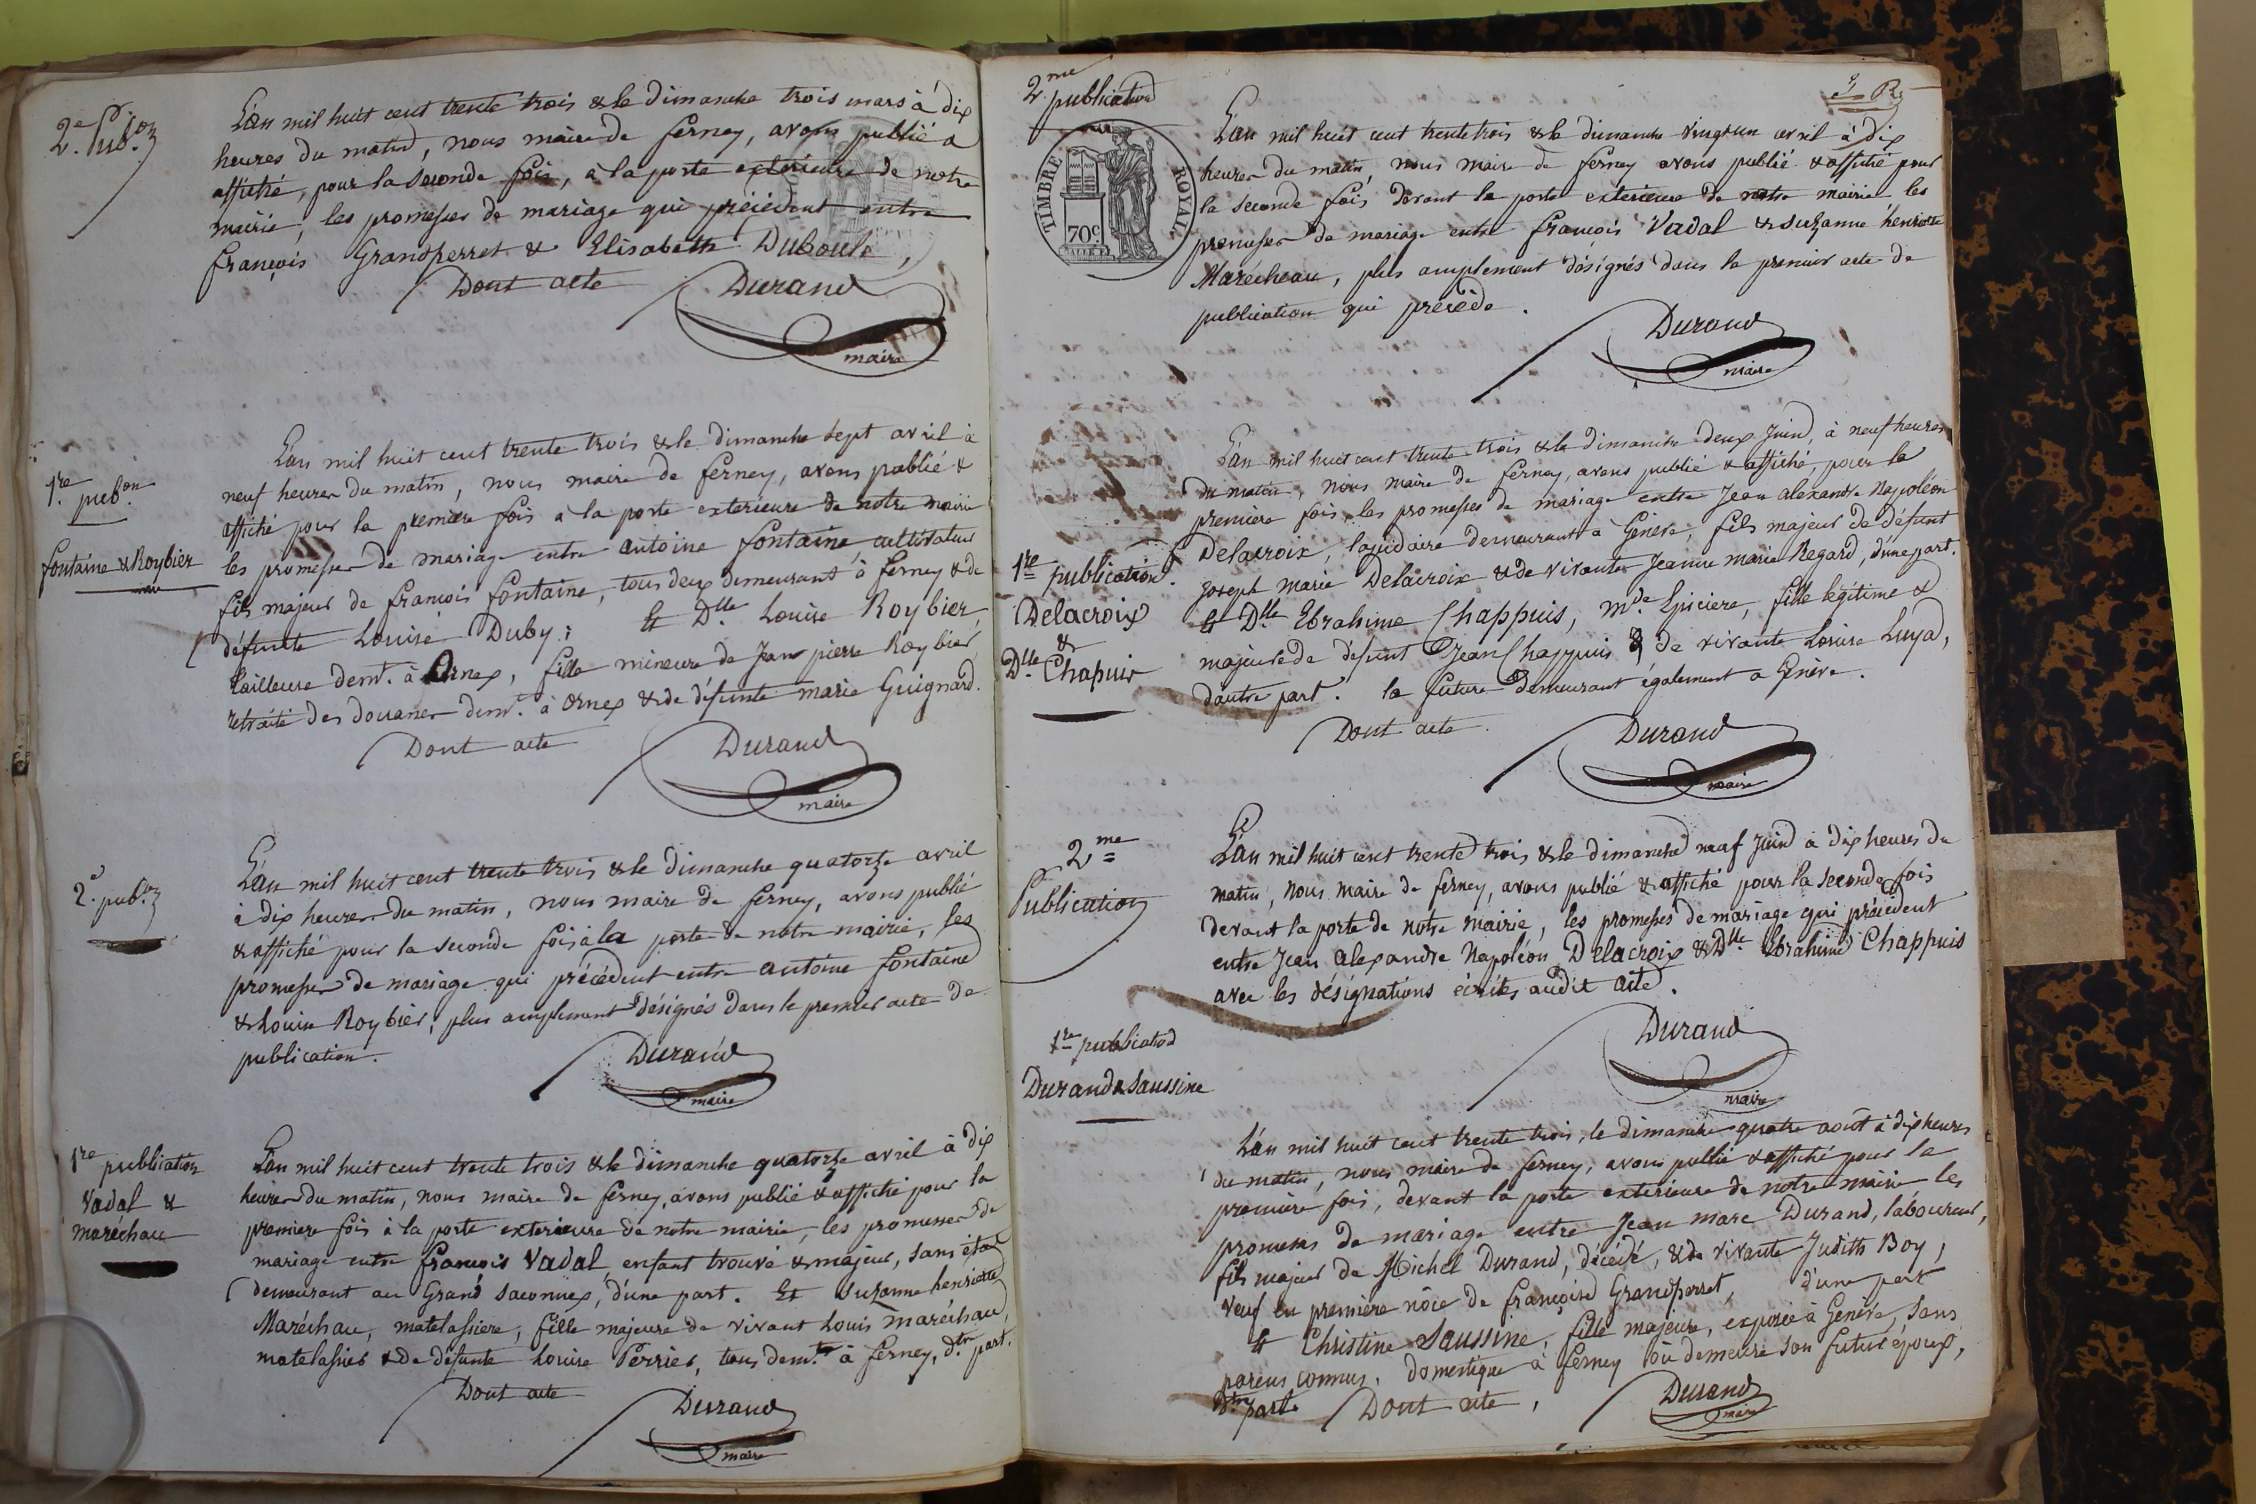 2.e Pub.on
L'an mil huit cent trente trois & le dimanche trois mars à dix
heures du matin, nous maire de ferney, avons publié &
affiché, pour la seconde fois, à la porte extérieure de notre
mairie, les promesses de mariage qui précèdent entre
françois Grandperret & Elisabeth Duboule,
Dont acte Durand
maire
1.re pub.on
fontaine & Roybier
L'an mil huit cent trente trois & le dimanche sept avril à
neuf heures du matin, nous maire de ferney, avons publié &
affiché pour la premiere fois à la porte exterieure de notre mairie
les promesses de mariage entre antoine fontaine cultivateur
fils majeur de francois fontaine, tous deux demeurant à ferney & de
défunte Louise Duby; Et D.lle Louise Roybier,
tailleuse dem.t à Ornex, fille mineure de Jean pierre Roybier
retraité des douanes dem.t à Ornex & de défunte marie Guignard.
Dont acte Durand
maire
2.e pub.on
L'an mil huit cent trente trois & le dimanche quatorze avril
à dix heures du matin, nous maire de ferney, avons publié
& affiché pour la seconde fois à la porte de notre mairie, les
promesses de mariage qui précèdent entre antoine fontaine
& Louise Roybier, plus amplement désignés dans le premier acte de
publication.
Durand
maire
1.re publication
Vadal &
maréchau
L'an mil huit cent trente trois & le dimanche quatorze avril à dix
heures du matin, nous maire de ferney, avons publié & affiché pour la
premiere fois à la porte exterieure de notre mairie, les promesses de
mariage entre françois Vadal, enfant trouvé & majeur, sans état
demeurant au Grand Saconnex, d'une part. Et Suzanne henriette
Maréchau, matelassiere, fille majeure de vivant Louis maréchau,
matelassier & de défunte Louise Perrier, tous dem.t à ferney, d.tre part.
Dont acte
Durand
maire
2.me publication
TIMBRE ROYAL
70c.
L'an mil huit cent trente trois & le dimanche vingt un avril à dix
heures du matin, nous maire de ferney avons publié & affiché pour
la seconde fois devant la porte exterieure de notre mairie les
promesses de mariage entre françois Vadal & suzanne henriette
Marécheau, plus amplement désignés dans le premier acte de
publication qui précède.
Durand
maire
1.re publication.
Delacroix
&
D.lle Chapuis
L'an mil huit cent trente trois & le dimanche deux Juin, à neuf heures
du matin, nous maire de ferney, avons publié & affiché, pour la
première fois les promesses de mariage entre Jean alexandre Napoléon
Delacroix, lapidaire demeurant à Genève, fils majeur de défunt
joseph marie Delacroix & de vivante Jeanne marie Regard, d'une part.
Et D.lle Ebrahime Chappuis, m.de Epiciere, fille légitime &
majeure de défunt Jean Chappuis & de vivante Louise Luya,
d'autre part. la future demeurant également a Genève.
Dont acte Durand
maire
2.me
Publication
L'an mil huit cent trente trois & le dimanche neuf Juin à dix heures du
matin, nous maire de ferney, avons publié & affiché pour la seconde fois
devant la porte de notre mairie, les promesses de mariage qui précèdent
entre Jean alexandre Napoléon Delacroix & D.lle Ebrahime Chappuis
avec les désignations écrites audit acte.
Durand
maire
1.re publication
Durand & Saussine
L'an mil huit cent trente trois, le dimanche quatre août à dix heures
du matin, nous maire de ferney, avons publié & affiché pour la
première fois, devant la porte exterieure de notre mairie les
promesses de mariage entre Jean marc Durand, laboureur,
fils majeur de Michel Durand, décédé, & de vivante Judith Boy,
veuf en première nôce de françoise Grandperret, d'une part
Et Christine Saussine, fille majeure, exposée à Genève, sans
parens connus, domestique à ferney où demeure son futur époux,
d.tre part. Dont acte, Durand
maire